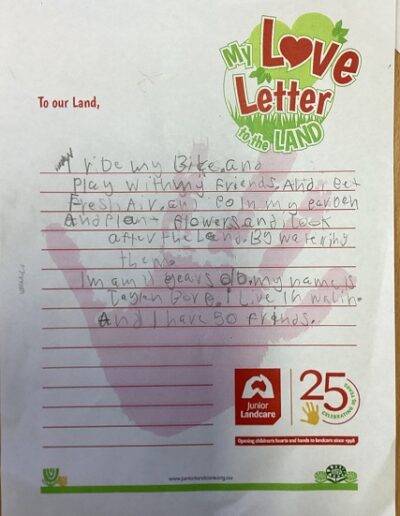 My Love
Letter
to the LAND
To our Land,
ride my Bike. and
Play with my friends. And i Get
Fresh Air. and Go in my garden
And Plant flowers and look
after the land. By watering
them.
Im am 11 years old. my name is
I Live in
And I have 50 friends.
Junior
Landcare
25
CELEBRATING 25 YEARS
Opening children's hearts and hands to landcare since 1998
www.juniorlandcare.org.au